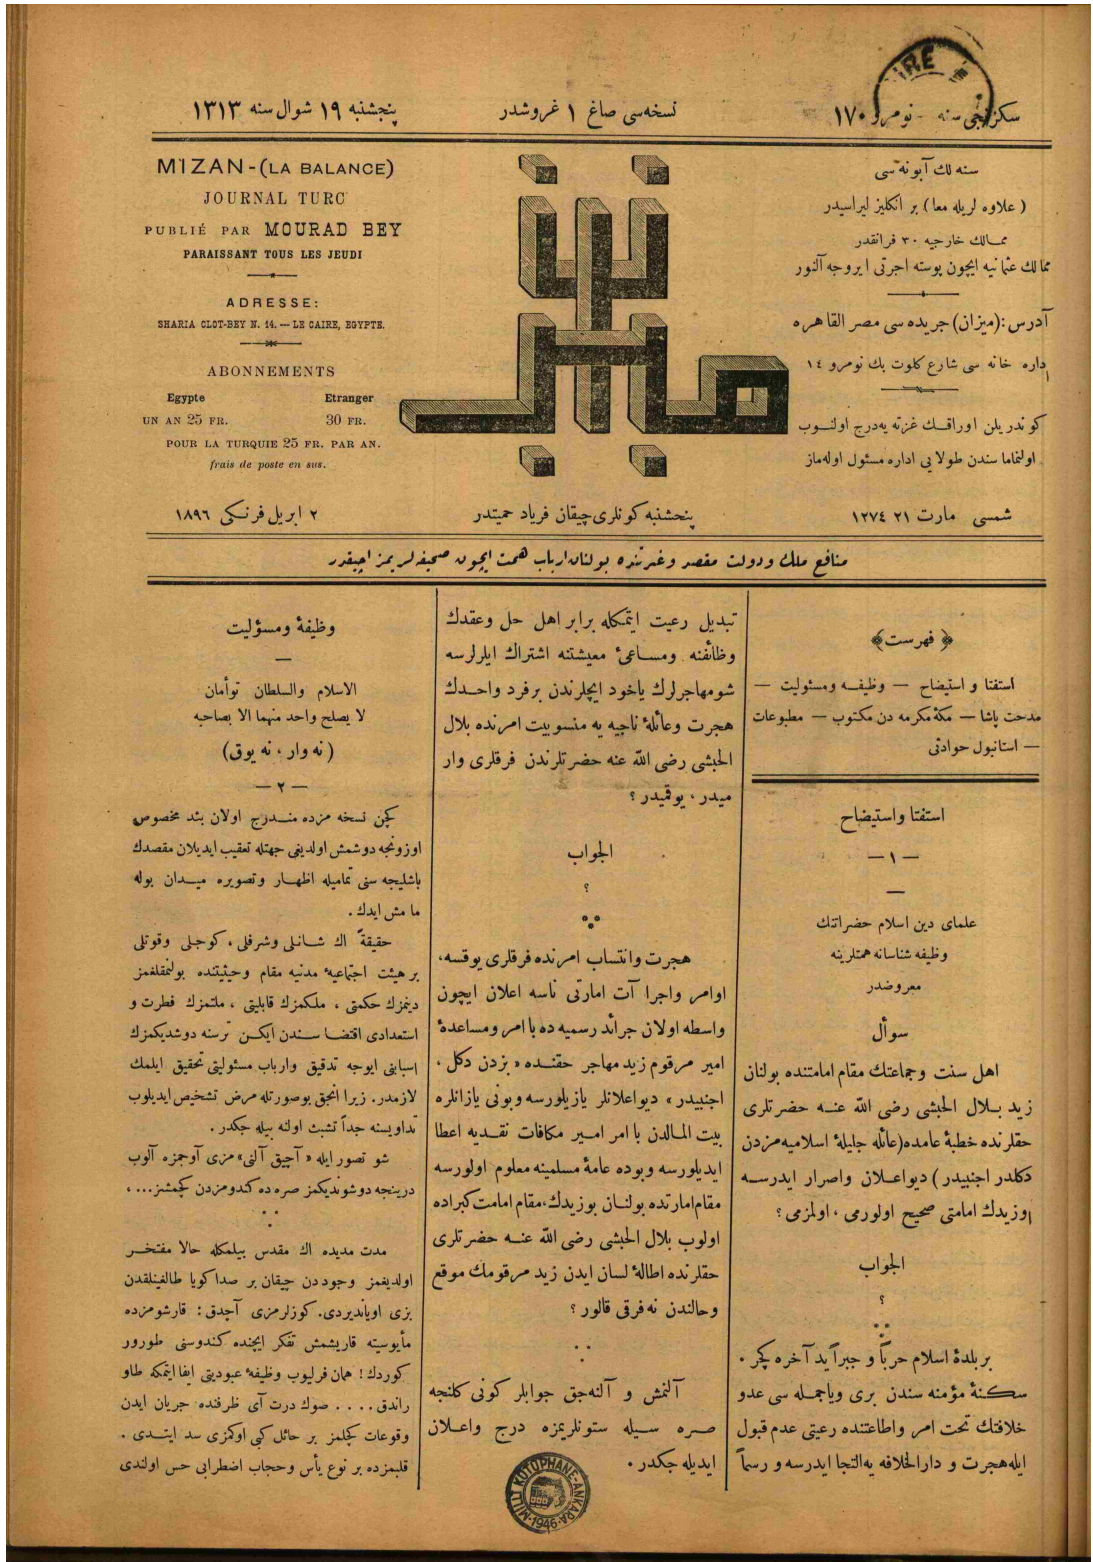 سكزنجی سنه — نومرو ١٧٠
نسخه‌سی صاغ ١ غروشدر
پنجشنبه ١٩ شوال سنه ١٣١٣
MIZAN-(LA BALANCE)
JOURNAL TURC
PUBLIÉ PAR MOURAD BEY
PARAISSANT TOUS LES JEUDI
ADRESSE:
SHARIA CLOT-BEY N. 14. — LE CAIRE, EGYPTE.
ABONNEMENTS
Egypte Etranger
UN AN 25 FR. 30 FR.
POUR LA TURQUIE 25 FR. PAR AN.
frais de poste en sus.
ميزان
سنه لك آبونه سی
( علاوه لريله معا ) بر انكليز ليراسيدر
ممالك خارجيه ٣٠ فرانقدر
ممالك عثمانيه ايچون پوسته اجرتی ايروجه آلنور
آدرس : (ميزان) جريده سی مصر القاهره
اداره خانه سی شارع كلوت بك نومرو ١٤
كوندريلن اوراقك غزته يه درج اولنوب
اولنماماسندن طولايی اداره مسئول اوله‌ماز
شمسی مارت ٢١ ١٢٧٤
پنجشنبه كونلری چيقان فرياد حميتدر
٢ ابريل فرنكی ١٨٩٦
منافع ملك ودولت مقصد وغيرتنده بولنان ارباب همت ايچون صحيفه لريمز اچيقدر
﴿ فهرست ﴾
استفتا و استيضاح — وظيفه ومسئوليت —
مدحت پاشا — مكهٔ مكرمه دن مكتوب — مطبوعات
— استانبول حوادثی
استفتا واستيضاح
— ١ —
علمای دين اسلام حضراتنك
وظيفه شناسانه همتلرينه
معروضدر
سوأل
اهل سنت وجماعتك مقام امامتنده بولنان
زيد بلال الحبشی رضی الله عنه حضرتلری
حقلرنده خطبهٔ عامده (عائلهٔ جليلهٔ اسلاميه مزدن
دكلدر اجنبيدر) ديو اعلان واصرار ايدرسه
اوزيدك امامتی صحيح اولورمی ، اولمزمی ؟
الجواب
؟
بر بلدهٔ اسلام حرباً و جبراً يد آخره كچر .
سكنهٔ مؤمنه سندن بری وياجمله سی عدو
خلافتك تحت امر واطاعتنده رعيتی عدم قبول
ايله هجرت و دارالخلافه يه التجا ايدرسه و رسماً
تبديل رعيت ايتمكله برابر اهل حل وعقدك
وظائفنه ومساعیٔ معيشتنه اشتراك ايلرلرسه
شومهاجرلرك ياخود ايچلرندن برفرد واحدك
هجرت وعائلهٔ ناجيه يه منسوبيت امرنده بلال
الحبشی رضی الله عنه حضرتلرندن فرقلری وار
ميدر ، يوقميدر ؟
الجواب
؟
هجرت وانتساب امرنده فرقلری يوقسه ،
اوامر واجرا آت امارتی ناسه اعلان ايچون
واسطه اولان جرائد رسميه ده با امر ومساعدهٔ
امير مرقوم زيد مهاجر حقنده « بزدن دكل ،
اجنبيدر » ديو اعلانلر يازيلورسه وبونی يازانلره
بيت المالدن با امر امير مكافات نقديه اعطا
ايديلورسه وبوده عامهٔ مسلمينه معلوم اولورسه
مقام امارتده بولنان بوزيدك ، مقام امامت كبراده
اولوب بلال الحبشی رضی الله عنه حضرتلری
حقلرنده اطالهٔ لسان ايدن زيد مرقومك موقع
وحالندن نه فرقی قالور ؟
آلنمش و آلنه جق جوابلر كونی كلنجه
صره سيله ستونلريمزه درج واعلان
ايديله جكدر .
وظيفهٔ ومسؤليت
الاسلام والسلطان توأمان
لا يصلح واحد منهما الا بصاحبه
( نه وار ، نه يوق )
— ٢ —
كچن نسخه مزده مندرج اولان بند مخصوص
اوزونجه دوشمش اولديغی جهتله تعقيب ايديلان مقصدك
باشليجه سنی تماميله اظهار وتصويره ميدان بوله
مامش ايدك .
حقيقةً اك شانلی وشرفلی ، كوجلی وقوتلی
برهيئت اجتماعيهٔ مدنيه مقام وحيثيتنده بولنمقلغمز
دينمزك حكمتی ، ملكمزك قابليتی ، ملتمزك فطرت و
استعدادی اقتضا سندن ايكن ترسنه دوشديكمزك
اسبابنی ايوجه تدقيق وارباب مسئوليتی تحقيق ايلمك
لازمدر . زيرا انجق بوصورتله مرض تشخيص ايديلوب
تداويسنه جداً تشبث اولنه بيله جكدر .
شو تصور ايله « آچيق آلنی » مزی آوجمزه آلوب
درينجه دوشونديكمز صره ده كندومزدن كچمشز ... ،
مدت مديده اك مقدس بيلمكله حالا مفتخر
اولديغمز وجوددن چيقان بر صدا كويا طالغينلقدن
بزی اوياندیردی . كوزلرمزی آچدق : قارشومزده
مأيوسيته قاريشمش تفكر ايچنده كندوسنی طورور
كوردك ! همان فرليوب وظيفهٔ عبوديتی ايفا ايتمكه طاو
راندق .... صوك درت آی ظرفنده جريان ايدن
وقوعات كچلمز بر حائل كبی اوكمزی سد ايتدی .
قلبمزده بر نوع يأس وحجاب اضطرابی حس اولندی
MİLLİ KÜTÜPHANE-ANKARA
1946